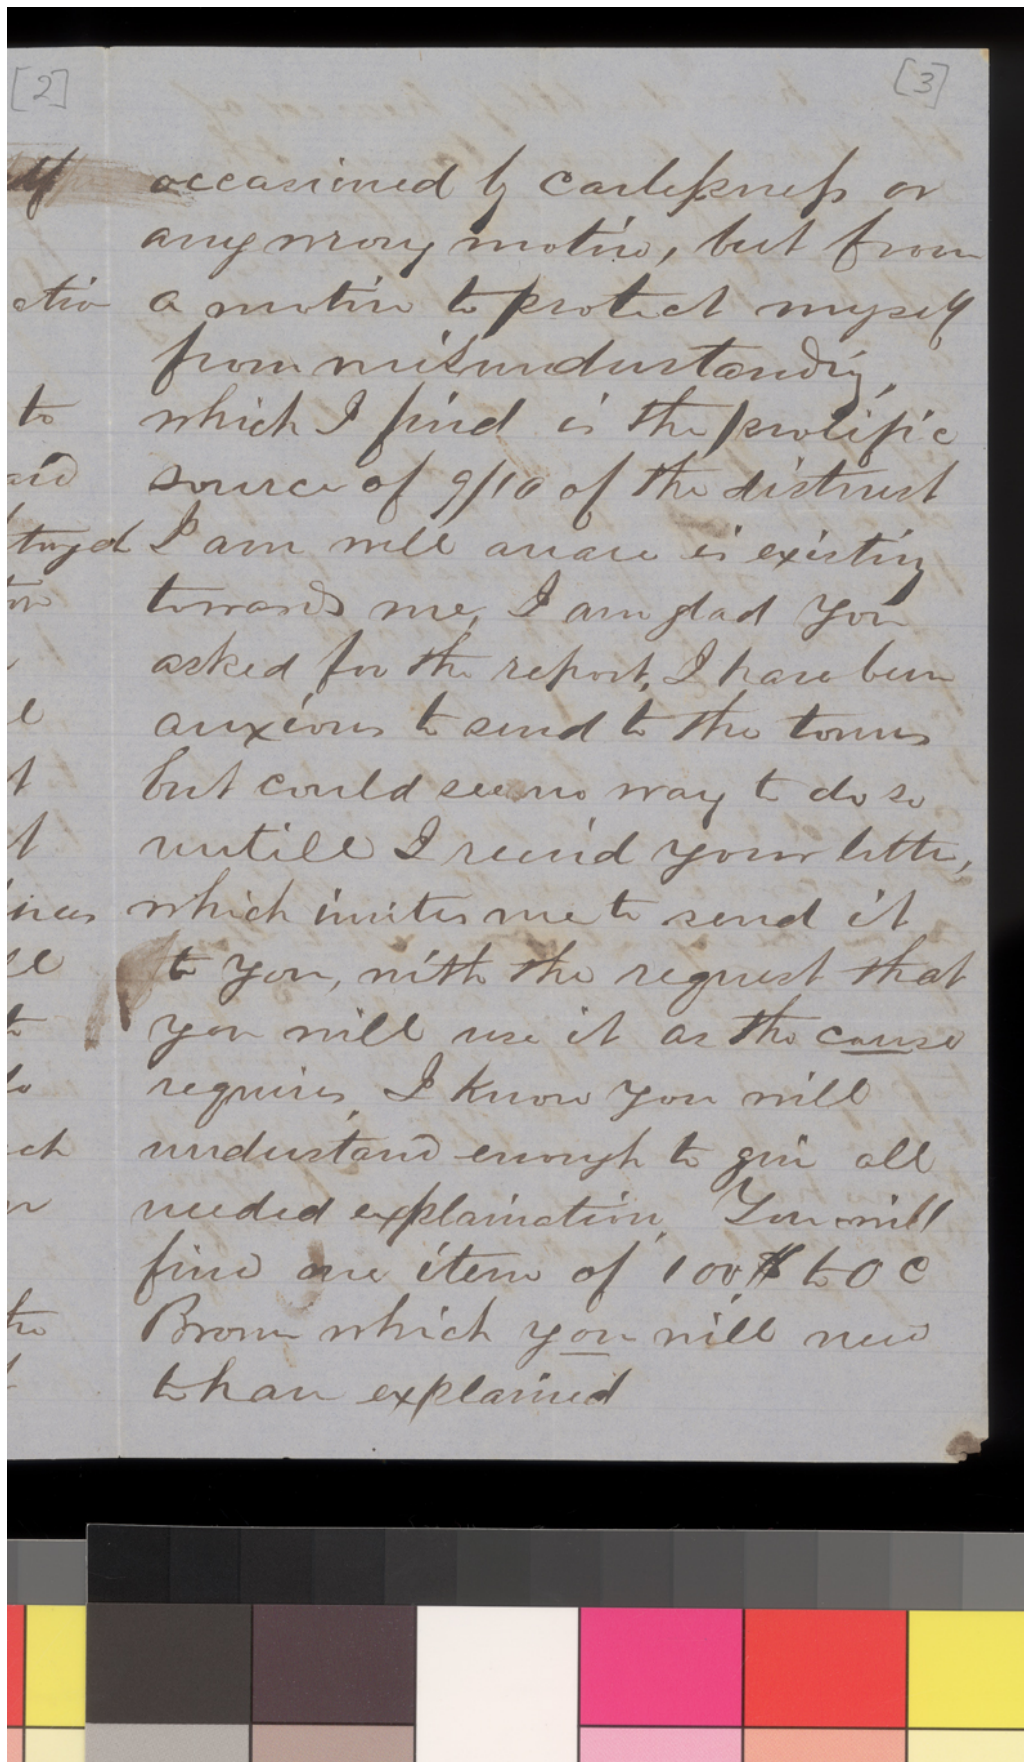 [2]
[3]
occasioned by carlessness or
any wrong motive, but from
a motive to protect myself
from misunderstanding,
which I find is the prolific
source of 9/10 of the distrust
I am well aware is existing
towards me, I am glad you
asked for the report, I have been
anxious to send to the towns
but could see no way to do so
untill I recivd your letter,
which invites me to send it
to you, with the request that
you will use it as the cause
requires, I know you will
understand enough to give all
needed explaination, You will
find one item of 100$ to O C
Brown which you will need
to have explained
ction
to
and
ch